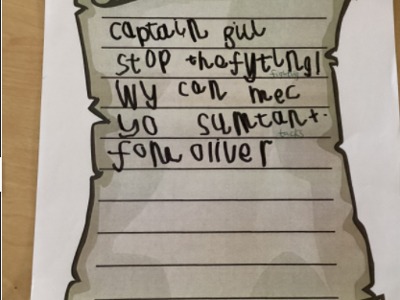 captain gill
stop thefyting!
fighting
Wy can mec
yo sumtant.
tricks
fom oliver